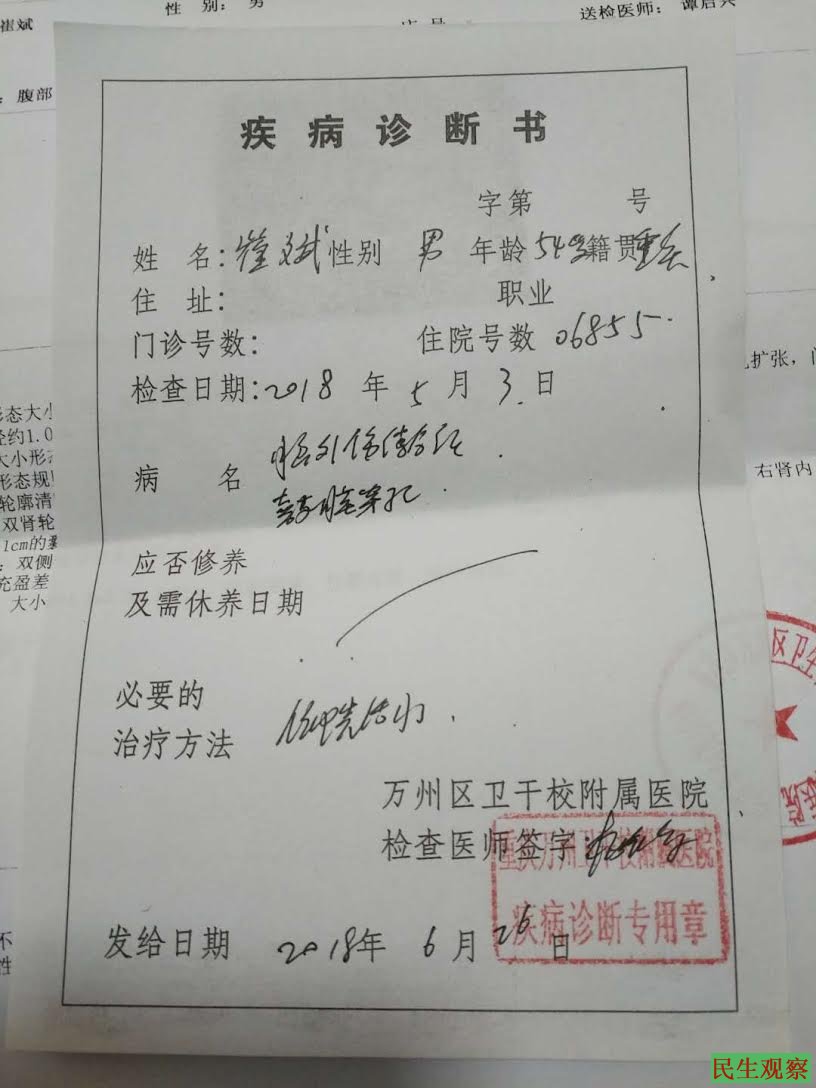 崔斌
性 别: 男
送检医师: 谭启兴
: 腹部
疾病诊断书
字第 号
姓 名: 崔斌 性别 男 年龄 54岁 籍贯 重庆
住 址: 职业
门诊号数: 住院号数 06855
检查日期: 2018 年 5 月 3 日
病 名
应否修养
及需休养日期
必要的
治疗方法
万州区卫干校附属医院
检查医师签字:
重庆万州卫干校附属医院
疾病诊断专用章
发给日期 2018年 6 月 26 日
形态大小
径约1.0
大小形态
形态规
轮廓清
双肾轮
1cm的囊
: 双侧
充盈差
大小
扩张,
右肾内
区卫生
医院
不
性
民生观察